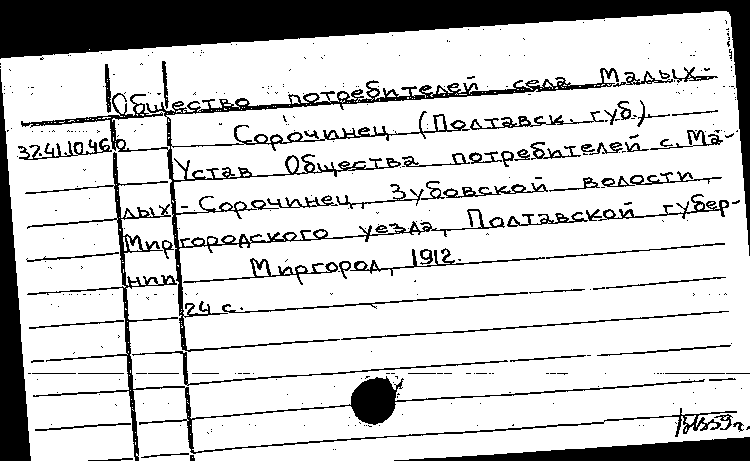 Общество потребителей села Малых-
Сорочинец (Полтавск. губ.).
37.41.10.46 о.
Устав Общества потребителей с. Ма-
лых-Сорочинец, Зубовской волости,
Миргородского уезда, Полтавской губер-
нии
Миргород, 1912.
24 с.